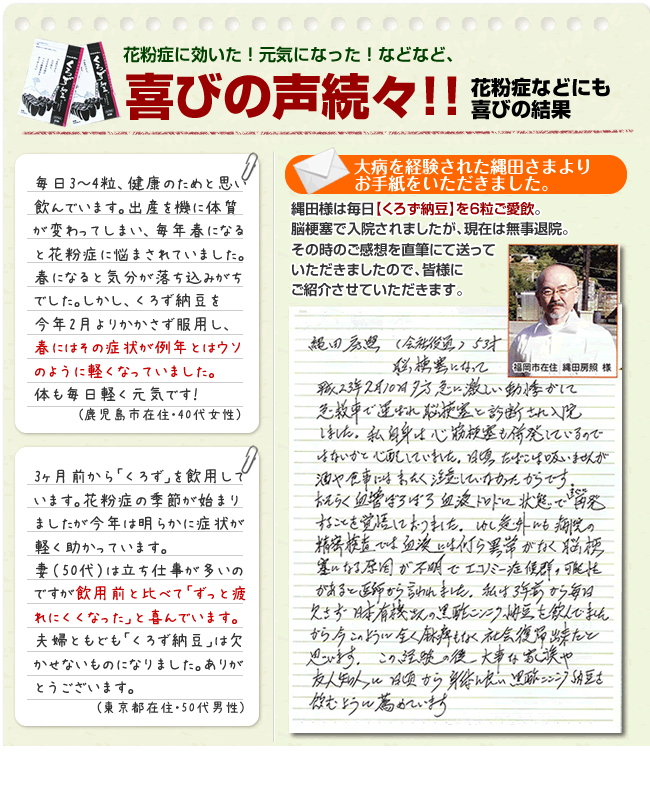 花粉症に効いた!元気になった!などなど、
喜びの声続々!!
花粉症などにも
喜びの結果
くろず
毎日3〜4粒、健康のためと思い
飲んでいます。出産を機に体質
が変わってしまい、毎年春になる
と花粉症に悩まされていました。
春になると気分が落ち込みがち
でした。しかし、くろず納豆を
今年2月よりかかさず服用し、
春にはその症状が例年とはウソ
のように軽くなっていました。
体も毎日軽く元気です!
(鹿児島市在住・40代女性)
3ヶ月前から「くろず」を飲用して
います。花粉症の季節が始まり
ましたが今年は明らかに症状が
軽く助かっています。
妻(50代)は立ち仕事が多いの
ですが飲用前と比べて「ずっと疲
れにくくなった」と喜んでいます。
夫婦ともども「くろず納豆」は欠
かせないものになりました。ありが
とうございます。
(東京都在住・50代男性)
大病を経験された縄田さまより
お手紙をいただきました。
縄田様は毎日【くろず納豆】を6粒ご愛飲。
脳梗塞で入院されましたが、現在は無事退院。
その時のご感想を直筆にて送って
いただきましたので、皆様に
ご紹介させていただきます。
福岡市在住 縄田房照 様
縄田房照 (会社役員) 53才
脳梗塞になって
平成23年2月10日夕方急に激しい動悸がして
急救車で運ばれ脳梗塞と診断され入院
しました。私自身は心筋梗塞も併発しているので
はないかと心配していました。日頃たばこは吸いませんが
酒や食事にはまったく注意していなかったからです。
おそらく血管ぼろぼろ血液ドロドロ状態で再発
することを覚悟しておりました。しかし意外にも病院の
精密検査では血液には何ら異常がなく脳梗
塞になる原因が不明でエコノミー症候群の可能性
があると医師から言われました。私は3年前から毎日
欠さず日本有機さんの黒酢ニンニク納豆を飲んできました
から今このように全く麻痺もなく社会復帰出来たと
思います。この経験の後大事な家族や
友人知人に日頃から身体に良い黒酢ニンニク納豆を
飲むように薦めています